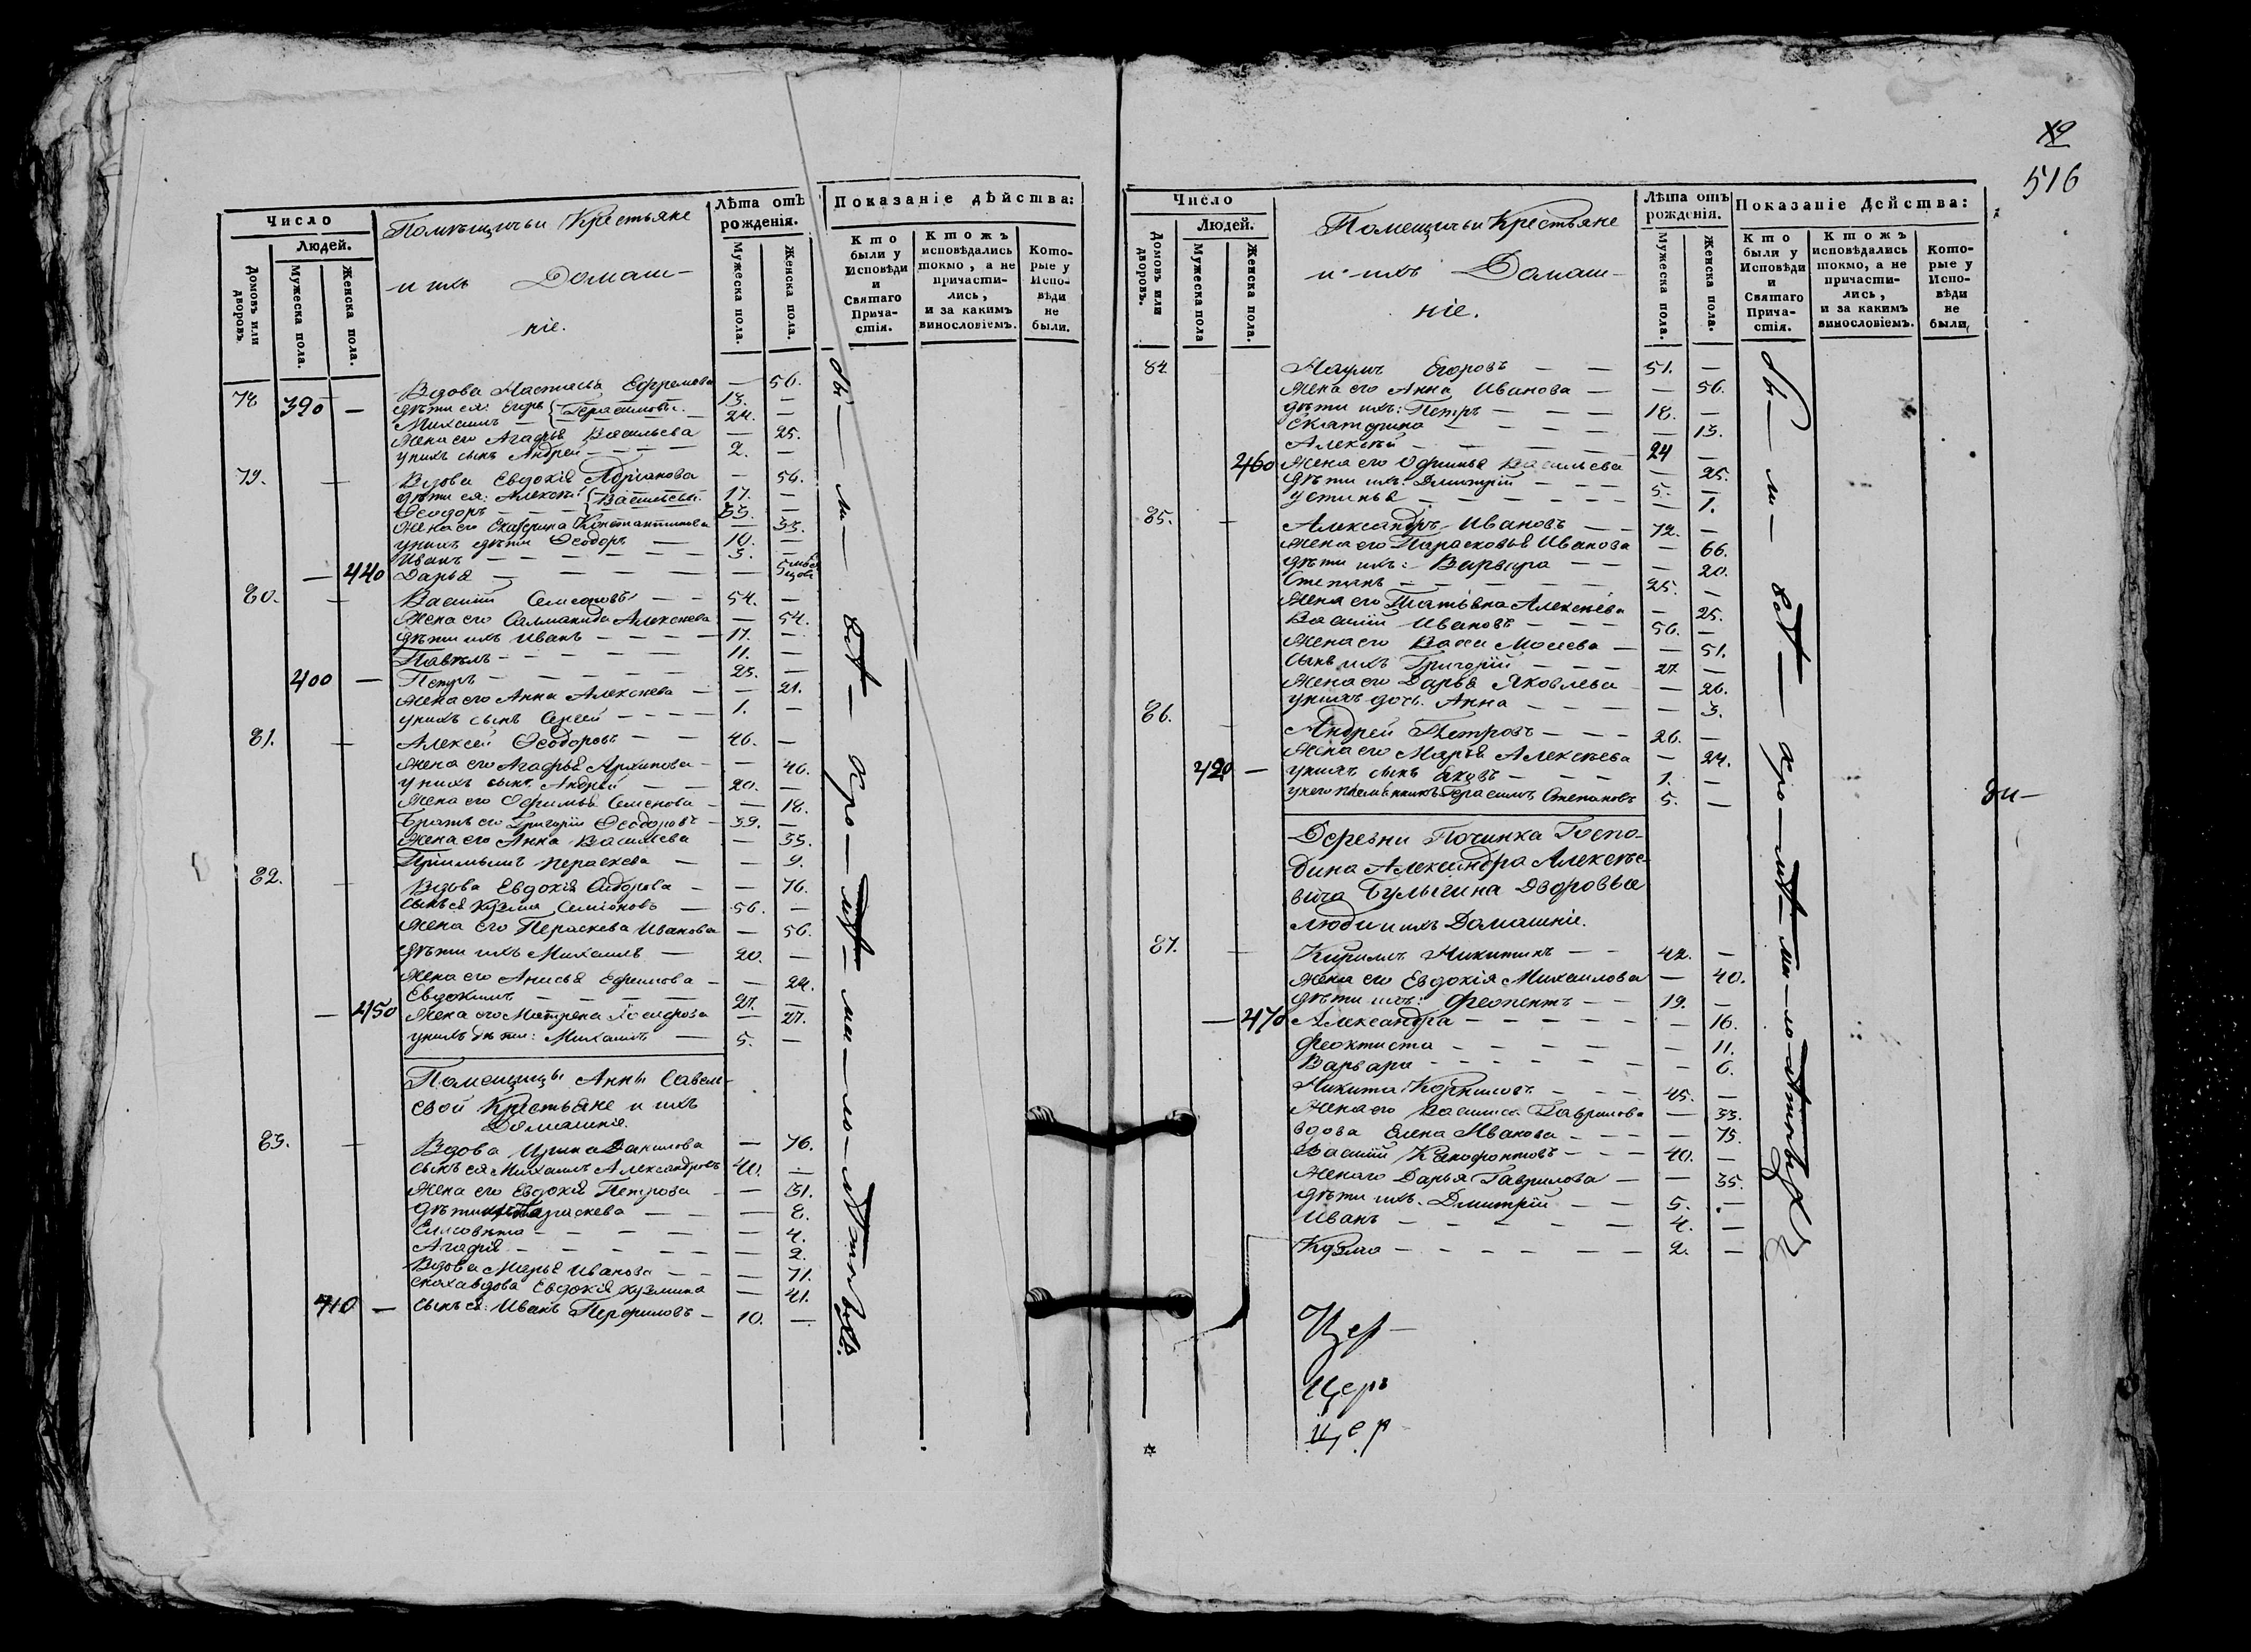 516
Число
Людей.
Домовъ или дворовъ.
Мужеска пола.
Женска пола.
Помѣщичьи Крестьяне
и ихъ Домаш-
ніе.
Лѣта отъ рожденія.
Мужеска пола.
Женска пола.
Показаніе дѣйства:
Кто были у Исповѣди и Святаго Прича-стія.
Ктожъ исповѣдались токмо, а не причасти-лись, и за какимъ винословіемъ.
Кото-рые у Испо-вѣди не были.
78 390 — Вдова Настасья Ефремова — 56.
дѣти ея: Егоръ Герасимовы. 13. —
Михаилъ 24. —
Жена его Агафья Васильева — 25.
у нихъ сынъ Андрей 2. —
79. — Вдова Евдокія Адріанова — 56.
дѣти ея: Алексѣй Васильевы. 17. —
Ѳеодоръ 33. —
Жена его Екатерина Константинова — 33.
у нихъ дѣти Ѳеодоръ 10. —
Иванъ 3. —
— 440 Дарья — 5
80. — Василій 54. —
Жена его Алексѣева — 54.
дѣти ихъ Иванъ 17. —
Павелъ 11. —
400 — Петръ 23. —
Жена его Анна Алексѣева — 21.
у нихъ сынъ Сергей 1. —
81. — Алексей Ѳеодоровъ 46. —
Жена его Агафья Архипова — 46.
у нихъ сынъ Андрей 20. —
Жена его Офимья Семенова — 18.
Братъ его Григорій Ѳеодоровъ 39. —
Жена его Анна Васильева — 33.
Праскева — 9.
82. — Вдова Евдокія Сидорова — 76.
сынъ ея Кузма Семіоновъ 56. —
Жена его Параскева Иванова — 56.
дѣти ихъ Михаилъ 20. —
Жена его Анисья Ефимова — 24.
Евдокимъ 27. —
— 450 Жена его Матрена — 27.
у нихъ дѣти: Михаилъ 5. —
Помещицы Анны Савель-
евой Крестьяне и ихъ
Домашніе.
83. — Вдова Ирина Данилова — 76.
сынъ ея Михаилъ Александровъ 40. —
Жена его Евдокія Петрова — 31.
дѣти ихъ Параскева — 8.
Елисавета — 4.
Агафія — 2.
Вдова Марья Иванова — 71.
сноха вдова Евдокія Кузмина — 41.
410 — сынъ ея: Иванъ Перфиловъ 10. —
Число
Людей.
Домовъ или дворовъ.
Мужеска пола
Женска пола.
Помещичьи Крестьяне
и ихъ Домаш-
ніе.
Лѣта отъ рожденія.
Мужеска пола.
Женска пола.
Показаніе Действа:
Кто были у Исповѣди и Святаго Прича-стія.
Ктожъ исповѣдались токмо, а не причасти-лись, и за какимъ винословіемъ.
Кото-рые у Испо-вѣди не были,
84 Наумъ Егоровъ 51. —
Жена его Анна Иванова — 56.
дѣти ихъ: Петръ 18. —
Екатерина — 13.
Алексѣй 24 —
460 Жена его Офимья Васильева — 25.
дѣти ихъ: Дмитрій 5. —
Устинья — 1.
85. — Александръ Ивановъ 72. —
Жена его Парасковья Иванова — 66.
дѣти ихъ: Варвара — 20.
Степанъ 25. —
Жена его Татьяна Алексѣева — 25.
Василій Ивановъ 56. —
Жена его Васса Мосеева — 51.
Сынъ ихъ Григорій 27 —
Жена его Дарья Яковлева — 26.
у нихъ дочь Анна — 3.
86. — Андрей Петровъ 26. —
Жена его Марья Алексѣева — 24.
420 — у нихъ сынъ Яковъ 1. —
у него племянникъ Герасимъ Степановъ 5. —
Деревни Починка Госпо-
дина Александра Алексѣе-
вича Булыгина Дворовые
люди и ихъ Домашніе.
87. — Кирилъ Никитинъ 42. —
Жена его Евдокія Михаилова — 40.
дѣти ихъ: Феопентъ 19. —
— 470 Александра — 16.
Феоктиста — 11.
Варвара — 6.
Никита Корниловъ 45. —
Жена его Василиса Гаврилова — 33.
вдова Елена Иванова — 75.
Василій Ксенофонтовъ 40. —
Жена его Дарья Гаврилова — 35.
дѣти ихъ. Дмитрій 5. —
Иванъ 4. —
Кузма 2. —
Цер-
Церк
цер